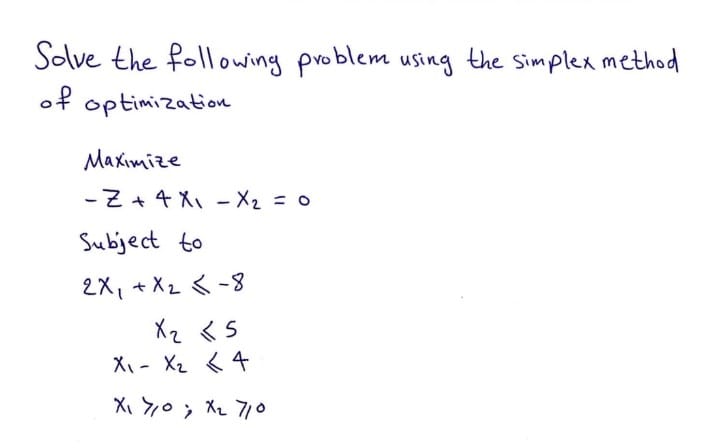 Solve the following problem using the simplex method
of optimization
Maximize
-Z + 4 X₁ - X₂ = 0
Subject to
2X₁ + X₂ ⩽ -8
X₂ ⩽ 5
X₁ - X₂ ⩽ 4
X₁ ⩾ 0 ; X₂ ⩾ 0